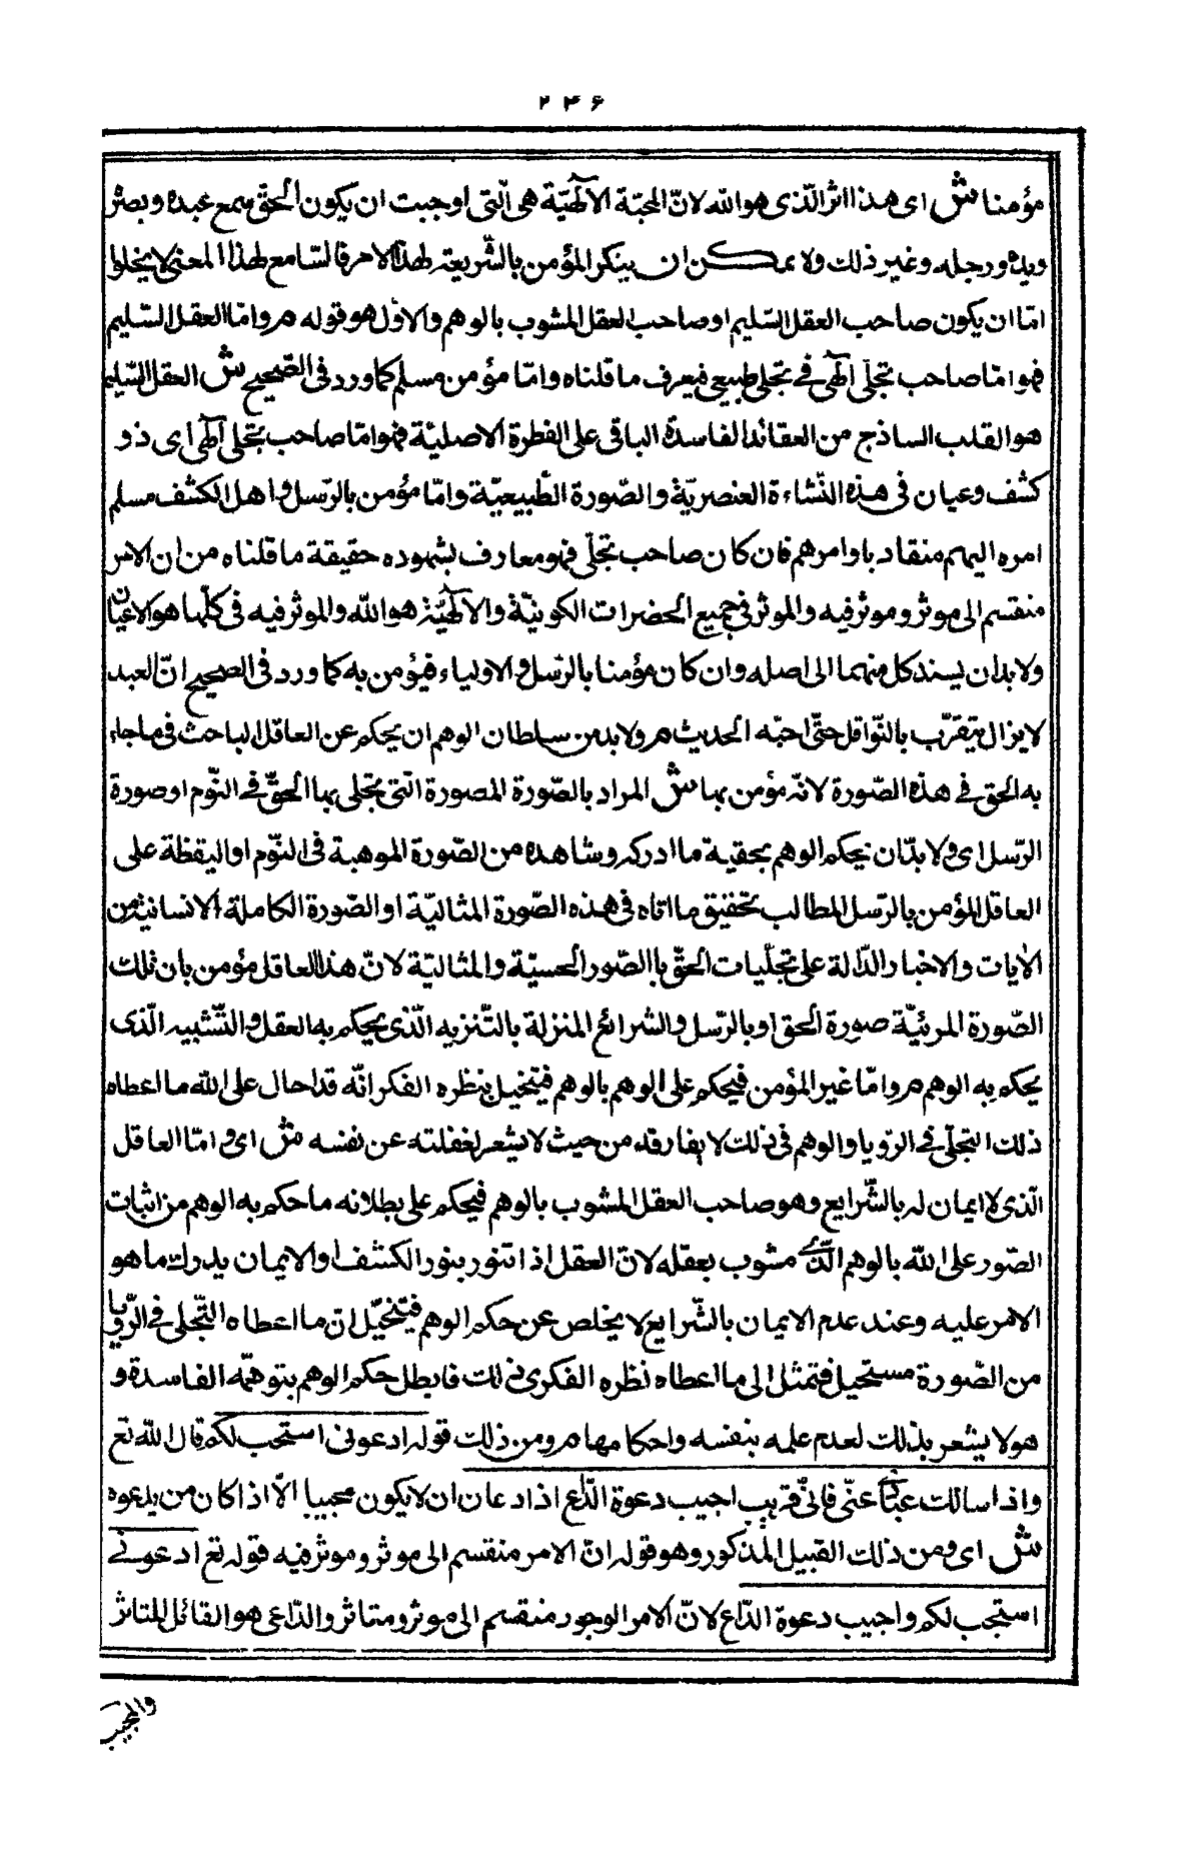 ۲۴۶
مؤمنا ش اى هذا اثر الّذى هو الله لانّ المحبّة الآلهيّة هى الّتى اوجبت ان يكون الحقّ سمع عبده وبصره
ويده ورجله وغير ذلك ولا يمكن ان ينكر المؤمن بالشّريعة لهذا الامر فالسّامع لهذا المعنى لا يخلوا
امّا ان يكون صاحب العقل السّليم او صاحب العقل المشوب بالوهم والاوّل هو قوله م وامّا العقل السّليم
فهو امّا صاحب تجلّى آلهى فى تجلى طبيعى فيعرف ما قلناه وامّا مؤمن مسلم كما ورد فى الصّحيح ش العقل السّليم
هو القلب الساذج من العقائد الفاسدة الباقى على الفطرة الاصليّة فهو امّا صاحب تجلى آلهى اى ذو
كشف وعيان فى هذه النّشاءة العنصريّة والصّورة الطّبيعيّة وامّا مؤمن بالرّسل واهل الكشف مسلم
امره اليهم منقاد باوامرهم فان كان صاحب تجلّى فهو معارف بشهوده حقيقة ما قلناه من ان الامر
منقسم الى موثر وموثر فيه والموثر فى جميع الحضرات الكونيّة والآلهيّة هو الله والموثر فيه فى كلّها هو الاعيان
ولا بد ان يسند كل منهما الى اصله وان كان مؤمنا بالرّسل والاولياء فيؤمن به كما ورد فى الصحيح انّ العبد
لا يزال يتقرّب بالنّوافل حتّى احبّه الحديث م ولا بد من سلطان الوهم ان يحكم عن العاقل الباحث فى ما جاء
به الحق فى هذه الصّورة لانّه مؤمن بها ش المراد بالصّورة المصورة الّتى يتجلى بها الحقّ فى النّوم او صورة
الرّسل اى ولا بدّ ان يحكم الوهم بحقية ما ادركه وشاهده من الصّورة الموهبة فى النّوم او اليقظة على
العاقل المؤمن بالرّسل المطالب بتحقيق ما اتاه فى هذه الصّورة المثاليّة او الصّورة الكاملة الانسانية من
الآيات والاخبار الدّالة على تجلّيات الحقّ باالصّور الحسيّة والمثاليّة لانّ هذا العاقل مؤمن بان تلك
الصّورة المرئيّة صورة الحق او بالرّسل والشرائع المنزلة بالتّنزيه الّذى يحكم به العقل والتّشبيه الّذى
يحكم به الوهم م وامّا غير المؤمن فيحكم على الوهم بالوهم فيتخيل بنظره الفكر انّه قد احال على الله ما اعطاه
ذلك التجلّى فى الرّويا والوهم فى ذلك لا يفارقه من حيث لا يشعر لغفلته عن نفسه ش اى وامّا العاقل
الّذى لا ايمان له بالشّرايع وهو صاحب العقل المشوب بالوهم فيحكم على بطلانه ما حكم به الوهم من اثبات
الصّور على الله بالوهم الّذى مشوب بعقله لانّ العقل اذا تنور بنور الكشف او الايمان يدرك ما هو
الامر عليه وعند عدم الايمان بالشّرايع لا يخلص عن حكم الوهم فيتخيّل انّ ما اعطاه التّجلى فى الرّويا
من الصّورة مستحيل فتمثل الى ما اعطاه نظره الفكرى فى ذلك فابطل حكم الوهم بتوهمّه الفاسدة و
هو لا يشعر بذلك لعدم علمه بنفسه واحكامها م ومن ذلك قوله ادعونى استجب لكم قال الله تع
واذا سالك عبادى عنّى فانّى قريب اجيب دعوة الدّاع اذا دعان ان لا يكون مجيبا الّا اذا كان من يدعوه
ش اى ومن ذلك القبيل المذكور وهو قوله انّ الامر منقسم الى موثر وموثر فيه قوله تع ادعونى
استجب لكم واجيب دعوة الدّاع لانّ الامر الوجود منقسم الى موثر ومتاثر والدّاعى هو القائل المتاثر
والمجيب